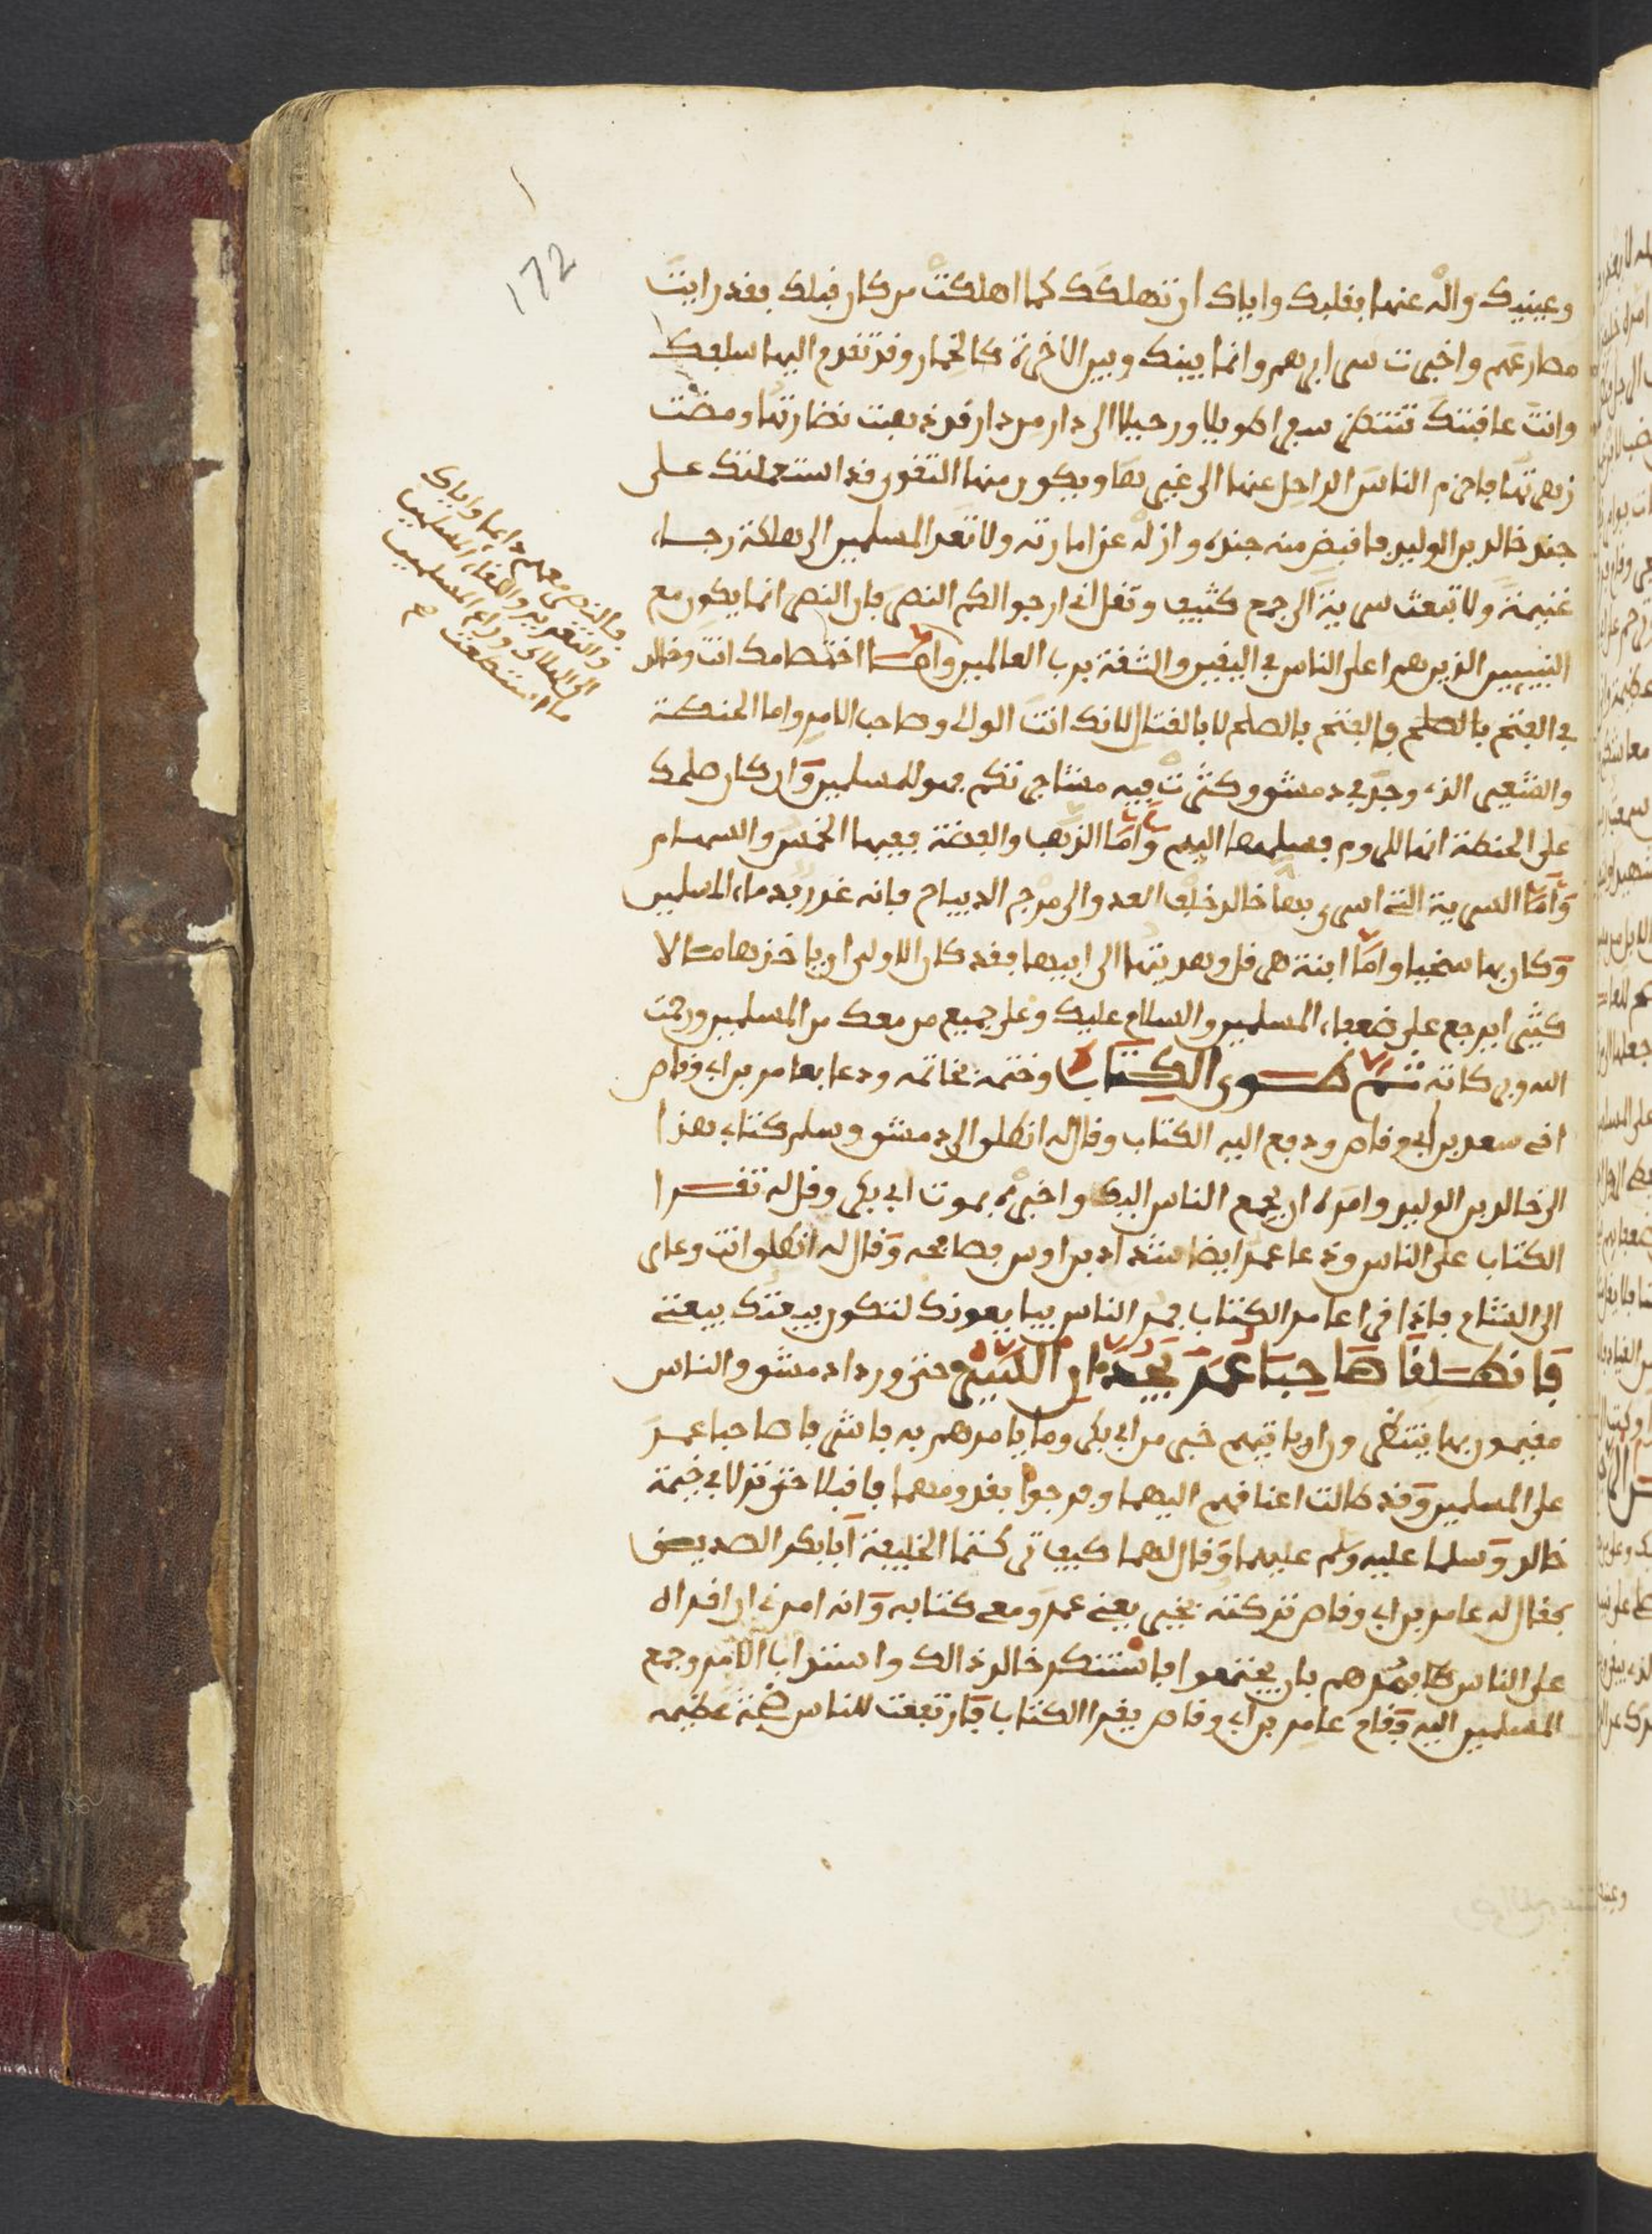 172
وعينيك واله عنها بقلبك واياك ان تهلكك كما اهلكت من كان قبلك بفد رايت
مصارعهم واخبرت سرايرهم وانما بينك وبين الاخرة كالخمار وقد تقدم اليها سلفك
وانت عاقبتك تنتظر سفرا طويلا ورحيلا الى دار من دار قد ذهبت نضارتها ومضت
زهرتها فاحزم الناس الراحل عنها الى غيرها ويكون منها التقوى قد استعملتك على
جند خالد بن الوليد فاقبض منه جنده وازله عن امارته ولا تقد المسلمين الى هلكة رجاء
غنيمة ولا تبعث سرية الى جمع كثيف وتقل اني ارجو الكم النصر فان النصر انما يكون مع
النبيين الذين هم اعلى الناس في اليقين والثقة برب العالمين واما اختصامك انت وخالد
في الفتح بالصلح والفتح بالصلح لا بالقتال لانك انت الوالى وصاحب الامر واما الحنطة
والشعير الذي وجد في دمشق وكثرت فيه مشاجرتكم فهو للمسلمين وان كان صلحك
على الحنطة انها للروم فسلمها اليهم واما الذهب والفضة ففيها الخمس والسهام
واما السرية التي اسرى بها خالد خلف العدو الى مرج الديباج فانه غرر بدماء المسلمين
وكان بها سخيا واما ابنة هرقل وهديتها الى ابيها فقد كان الاولى ان ياخذ بها مالا
كثيرا يرجع على ضعفاء المسلمين والسلام عليك وعلى جميع من معك من المسلمين ورحمت
الله وبركاته ثم طوى الكتاب وختمه بخاتمه ودعا بعامر بن ابي وقاص
اخي سعد بن ابي وقاص ودفع اليه الكتاب وقال له انطلق الى دمشق وسلم كتابي هذا
الى خالد بن الوليد وامره ان يجمع الناس اليك واخبره بموت ابي بكر وقل له تقرا
الكتاب على الناس ودعا عمر ايضا شداد بن اوس فصافحه وقال له انطلق انت وعامر
الى الشام فاذا قرا عامر الكتاب فمر الناس يبايعونك لتكون بيعتك بيعتي
فانطلقا صاحبا عمر يجدان السير حتى وردا دمشق والناس
مقيمون بها ينتظرون ان ياتيهم خبر من ابي بكر وما يامرهم به فاشرفا صاحبا عمر
على المسلمين وقد طالت اعناقهم اليهما وفرحوا بقدومهما فاقبلا حتى نزلا في خيمة
خالد وسلما عليه وسلم عليهما وقال لهما كيف تركتما الخليفة ابا بكر الصديق
فقال له عامر بن ابي وقاص تركته بخير يعني عمر ومعي كتابه وانه امرني ان اقراه
على الناس فامرهم بان يجتمعوا فاستنكر خالد ذالك واستراب الامر وجمع
المسلمين اليه وقام عامر بن ابي وقاص يقرا الكتاب فارتفعت للناس ضجة عظيمة
فالنصر معهم دايما واياك
والتغرير والقاء المسلمين
الى الهلاك وراع المسلمين
ما استطعت صح